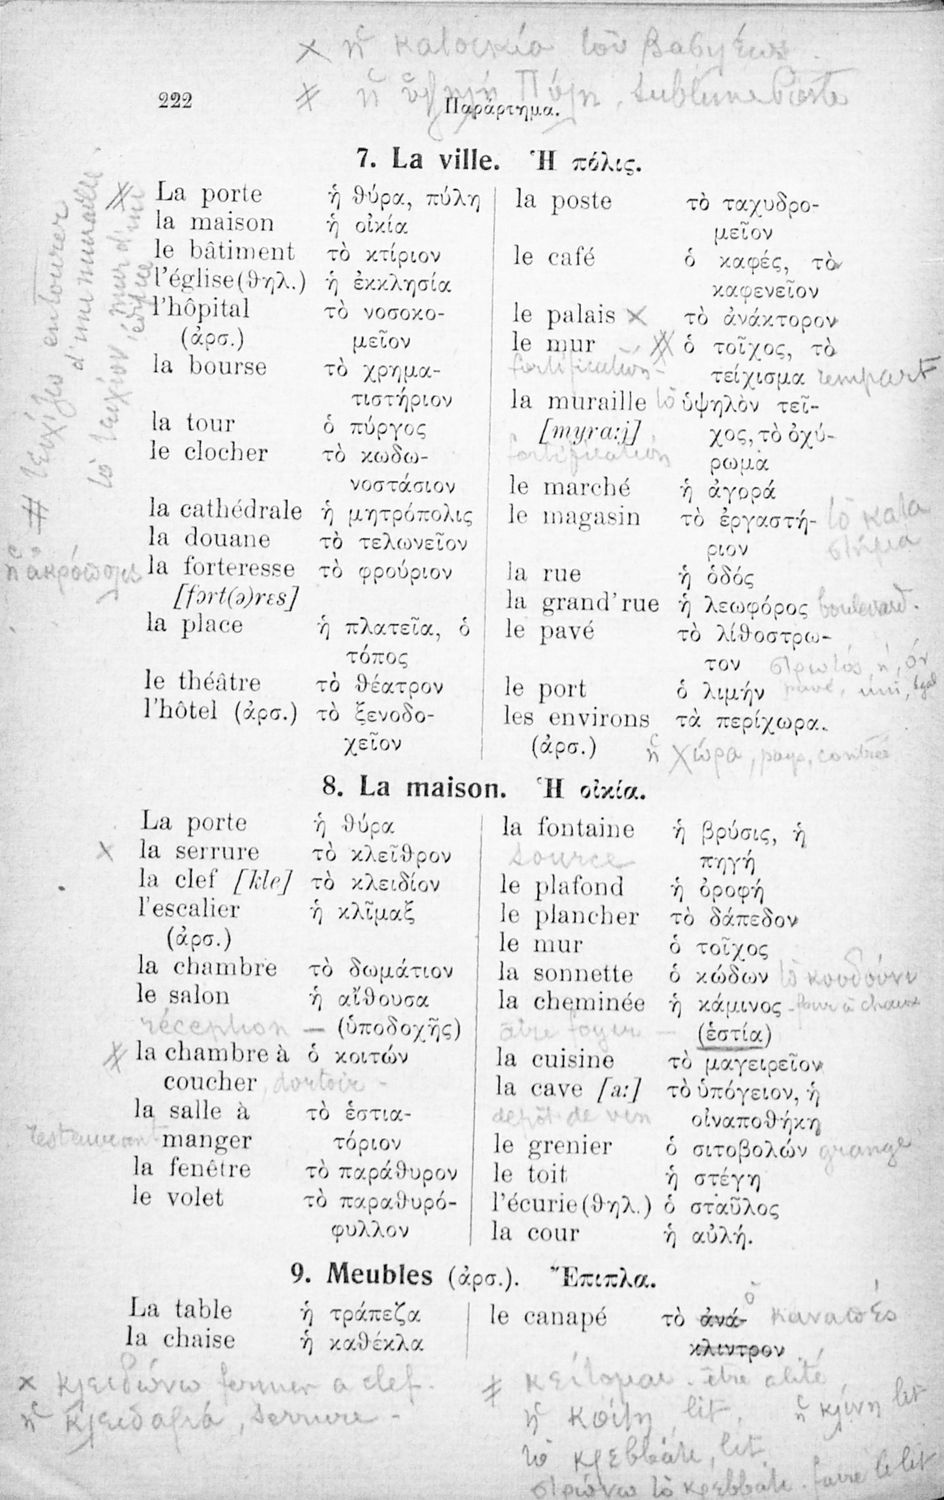 222
Παράρτημα.
sublime Porte
7. La ville. Ἡ πόλις.
La porte ἡ θύρα, πύλη
la maison ἡ οἰκία
le bâtiment τὸ κτίριον
l'église(θηλ.) ἡ ἐκκλησία
l'hôpital τὸ νοσοκο-
(ἀρσ.) μεῖον
la bourse τὸ χρημα-
τιστήριον
la tour ὁ πύργος
le clocher τὸ κωδω-
νοστάσιον
la cathédrale ἡ μητρόπολις
la douane τὸ τελωνεῖον
la forteresse τὸ φρούριον
[fɔrt(ə)rɛs]
la place ἡ πλατεῖα, ὁ
τόπος
le théâtre τὸ θέατρον
l'hôtel (ἀρσ.) τὸ ξενοδο-
χεῖον
la poste τὸ ταχυδρο-
μεῖον
le café ὁ καφές, τὸ
καφενεῖον
le palais × τὸ ἀνάκτορον
le mur ὁ τοῖχος, τὸ
fortification τείχισμα rempart
la muraille τὸ ὑψηλὸν τεῖ-
[myra:j] χος, τὸ ὀχύ-
fortification ρωμα
le marché ἡ ἀγορά
le magasin τὸ ἐργαστή- τὸ κατα
ριον στημα
la rue ἡ ὁδός
la grand'rue ἡ λεωφόρος boulevard.
le pavé τὸ λίθοστρω-
τον
le port ὁ λιμήν
les environs τὰ περίχωρα.
(ἀρσ.) ἡ χώρα, pays, contrée
8. La maison. Ἡ οἰκία.
La porte ἡ θύρα
× la serrure τὸ κλεῖθρον
la clef [kle] τὸ κλειδίον
l'escalier ἡ κλῖμαξ
(ἀρσ.)
la chambre τὸ δωμάτιον
le salon ἡ αἴθουσα
réception — (ὑποδοχῆς)
la chambre à ὁ κοιτών
coucher, dortoir -
la salle à τὸ ἑστια-
restaurant manger τόριον
la fenêtre τὸ παράθυρον
le volet τὸ παραθυρό-
φυλλον
la fontaine ἡ βρύσις, ἡ
source πηγή
le plafond ἡ ὀροφή
le plancher τὸ δάπεδον
le mur ὁ τοῖχος
la sonnette ὁ κώδων τὸ κουδούνι
la cheminée ἡ κάμινος - four à chaux
âtre foyer — (ἑστία)
la cuisine τὸ μαγειρεῖον
la cave [a:] τὸ ὑπόγειον, ἡ
depôt de vin οἰναποθήκη
le grenier ὁ σιτοβολών grange
le toit ἡ στέγη
l'écurie(θηλ.) ὁ σταῦλος
la cour ἡ αὐλή.
9. Meubles (ἀρσ.). Ἔπιπλα.
La table ἡ τράπεζα
la chaise ἡ καθέκλα
le canapé τὸ ἀνά- ὁ καναπές
κλιντρον
× κλειδώνω fermer a clef.
ἡ κλειδαριά, serrure -
κείτομαι - être alité
ἡ κοίτη, lit, ἡ κλίνη lit
τὸ κρεββάτι, lit,
στρώνω τὸ κρεββάτι. faire le lit